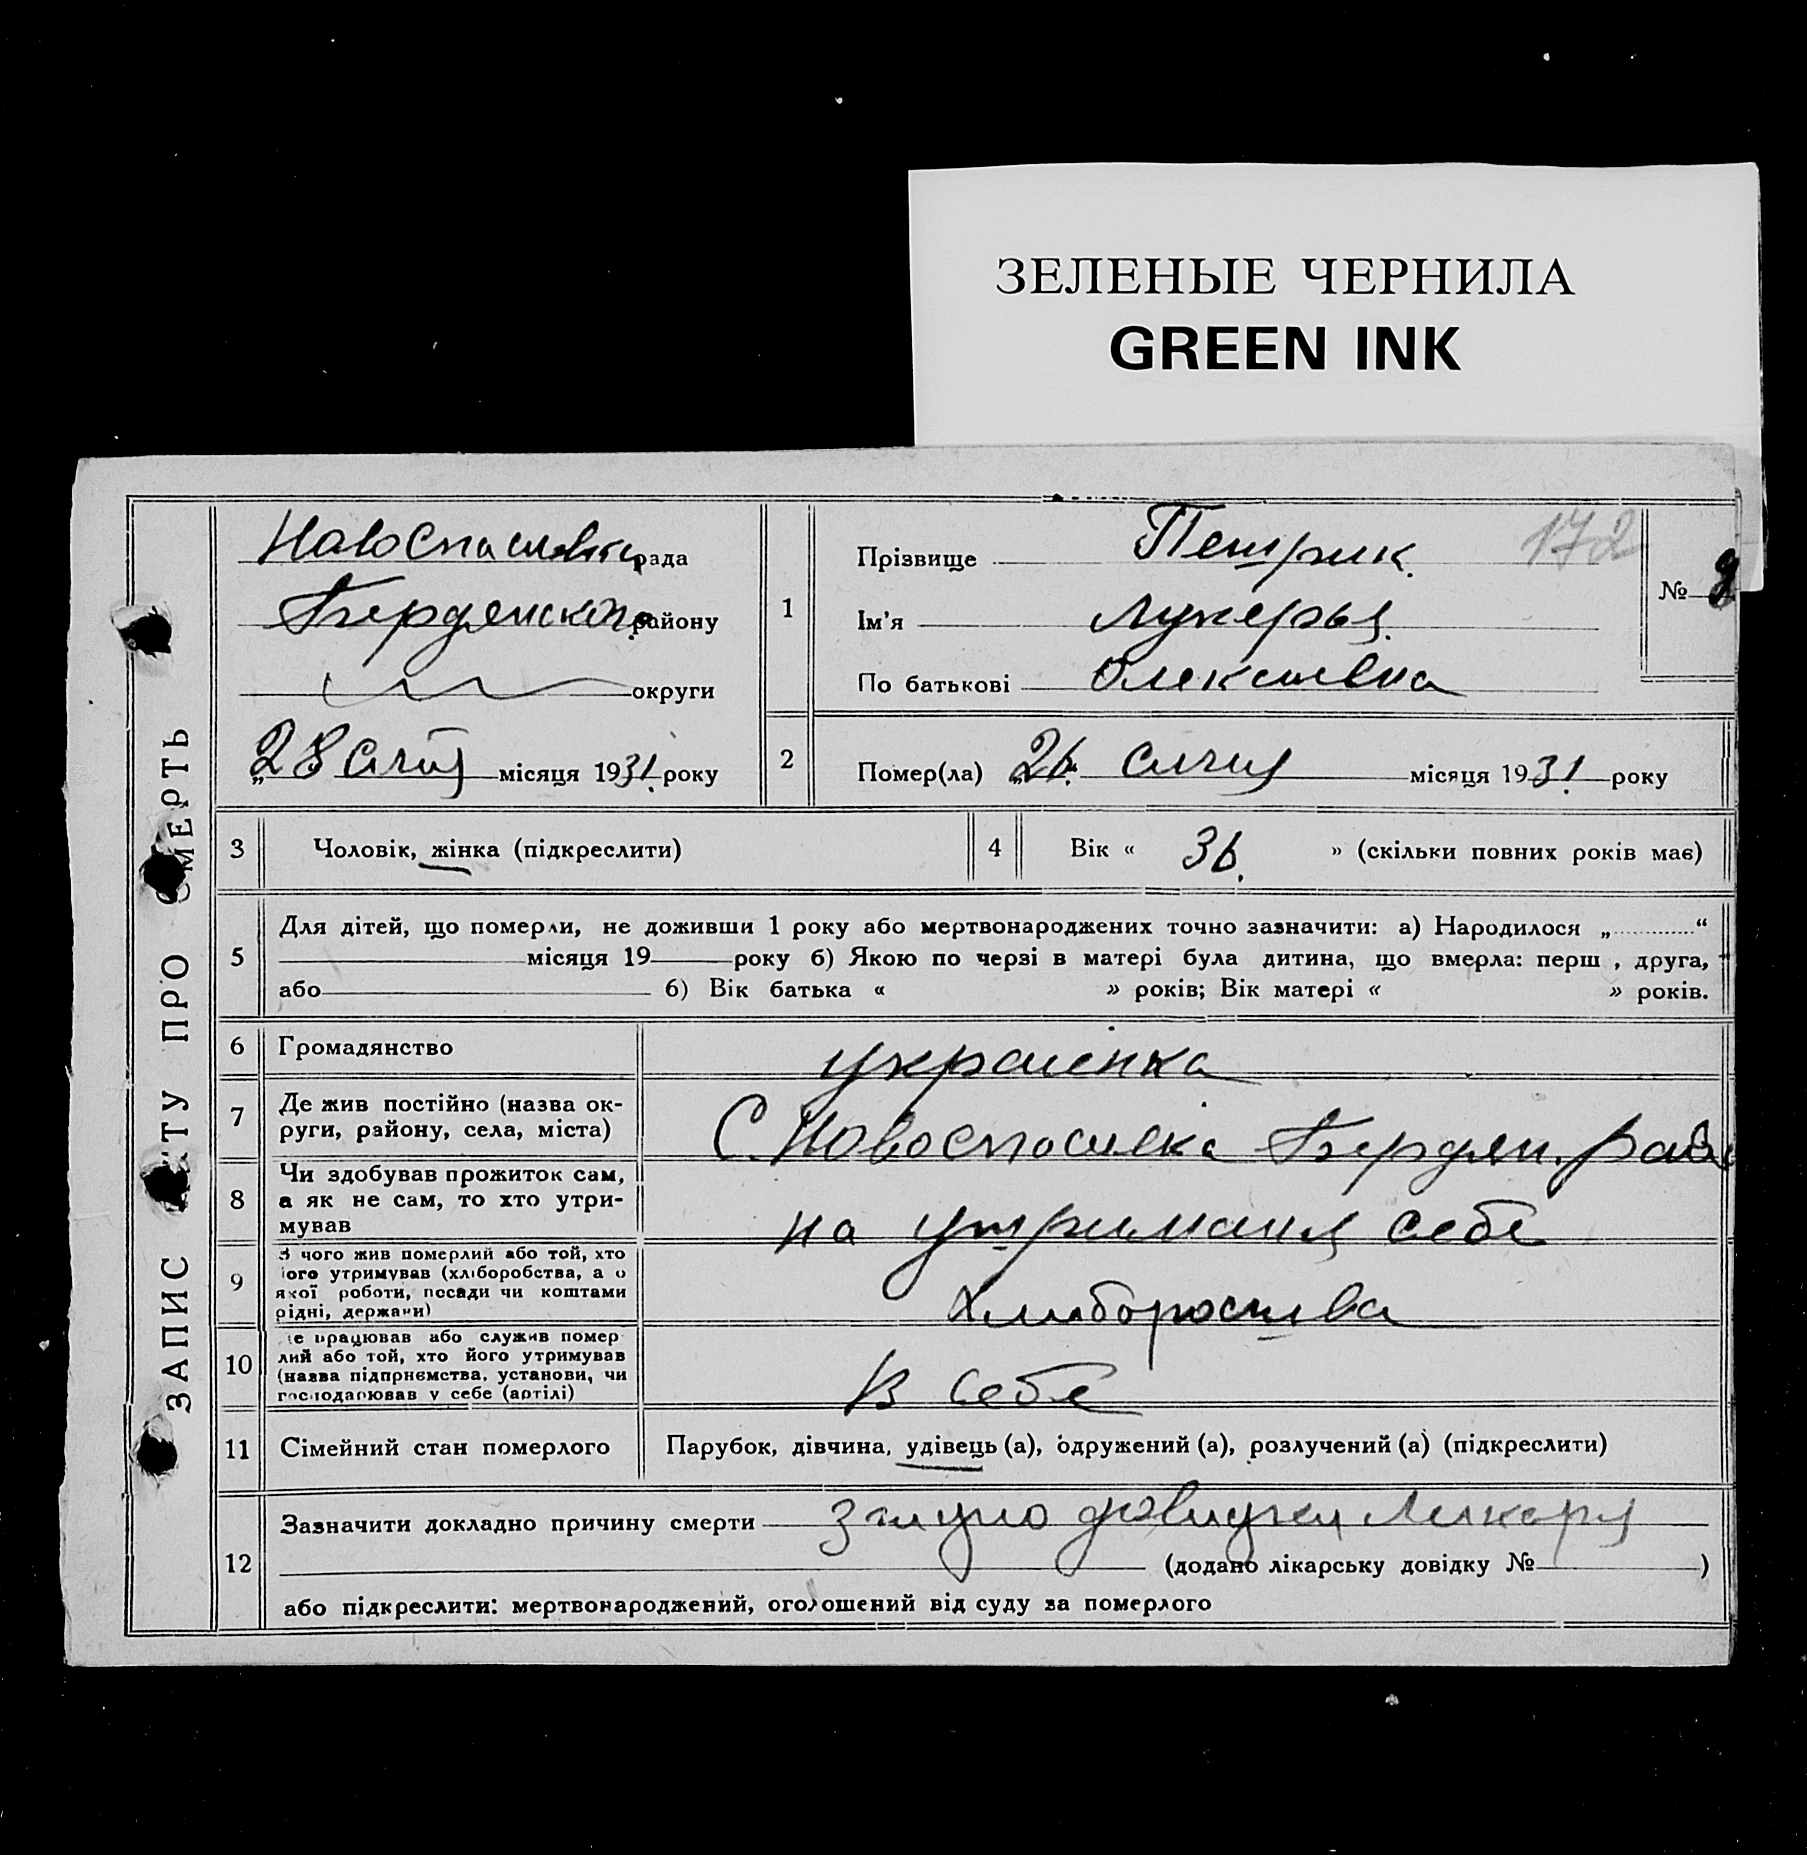 ЗЕЛЕНЫЕ ЧЕРНИЛА
GREEN INK
ЗАПИС АКТУ ПРО СМЕРТЬ
Новоспасивка рада
Бердянского району
округи
„28 січня місяця 1931. року
1
Прізвище Петрик.
172
№
Ім'я Лукерья.
По батькові Олексиевна
2
Помер(ла) „26." сичня місяця 1931. року
3 Чоловік, жінка (підкреслити)
4 Вік « 36. » (скільки повних років має)
5
Для дітей, що померли, не доживши 1 року або мертвонароджених точно зазначити: а) Народилося „ “
місяця 19 року б) Якою по черзі в матері була дитина, що вмерла: перш , друга,
або б) Вік батька « » років; Вік матері « » років.
6 Громадянство украінка
7 Де жив постійно (назва ок-
руги, району, села, міста)
С. Новоспасивка Бердян. рай
8 Чи здобував прожиток сам,
а як не сам, то хто утри-
мував
на утриманя себе
9 З чого жив померлий або той, хто
його утримував (хліборобства, а о
якої роботи, посади чи коштами
рідні, держави)
Хлибороства
10 Де працював або служив помер
лий або той, хто його утримував
(назва підприємства, установи, чи
господарював у себе (артілі)
В себе
11 Сімейний стан померлого Парубок, дівчина, удівець (а), одружений (а), розлучений (а) (підкреслити)
12
Зазначити докладно причину смерти довидки ликаря
(додано лікарську довідку № )
або підкреслити: мертвонароджений, оголошений від суду за померлого